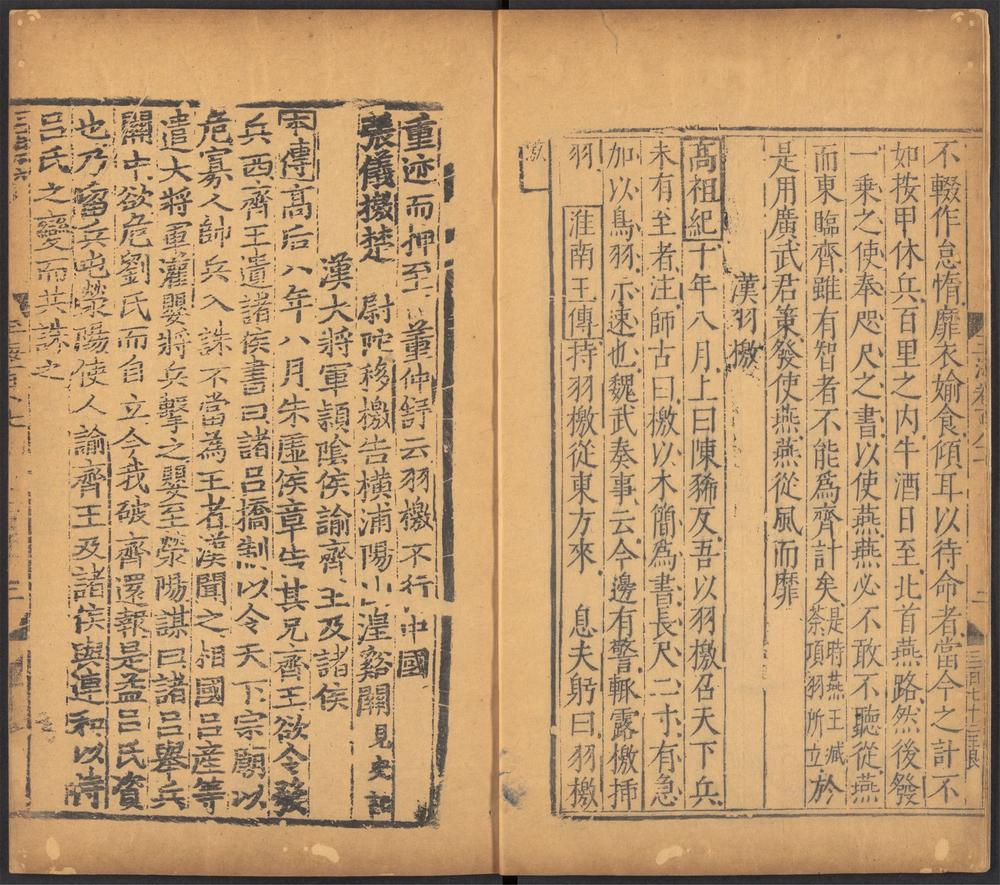 不輟作怠惰靡衣媮食傾耳以待命者當今之計不
如按甲休兵百里之内牛酒日至北首燕路然後發
一乘之使奉咫尺之書以使燕燕必不敢不聽從燕
而東臨齊雖有智者不能爲齊計矣是時燕王臧荼項羽所立於
是用廣武君策發使燕燕從風而靡
漢羽檄
高祖紀十年八月上曰陳豨反吾以羽檄召天下兵
未有至者注師古曰檄以木簡爲書長尺二寸有急
加以鳥羽示速也魏武奏事云今邊有警輒露檄揷
羽 淮南王傳持羽檄從東方來 息夫躬曰羽檄
重迹而押至 董仲舒云羽檄不行中國
張儀檄楚 尉陀移檄告橫浦陽山湟谿關見史記
漢大將軍頴陰侯諭齊王及諸侯
本傳高后八年八月朱虛侯章告其兄齊王欲令發
兵西齊王遺諸侯書曰諸呂擅制以令天下宗廟以
危寡人帥兵入誅不當為王者漢聞之相國呂產等
遣大將軍灌嬰將兵擊之嬰至滎陽謀曰諸呂舉兵
關中欲危劉氏而自立今我破齊還報是益呂氏資
也乃畱兵屯滎陽使人諭齊王及諸侯與連和以待
呂氏之變而共誅之